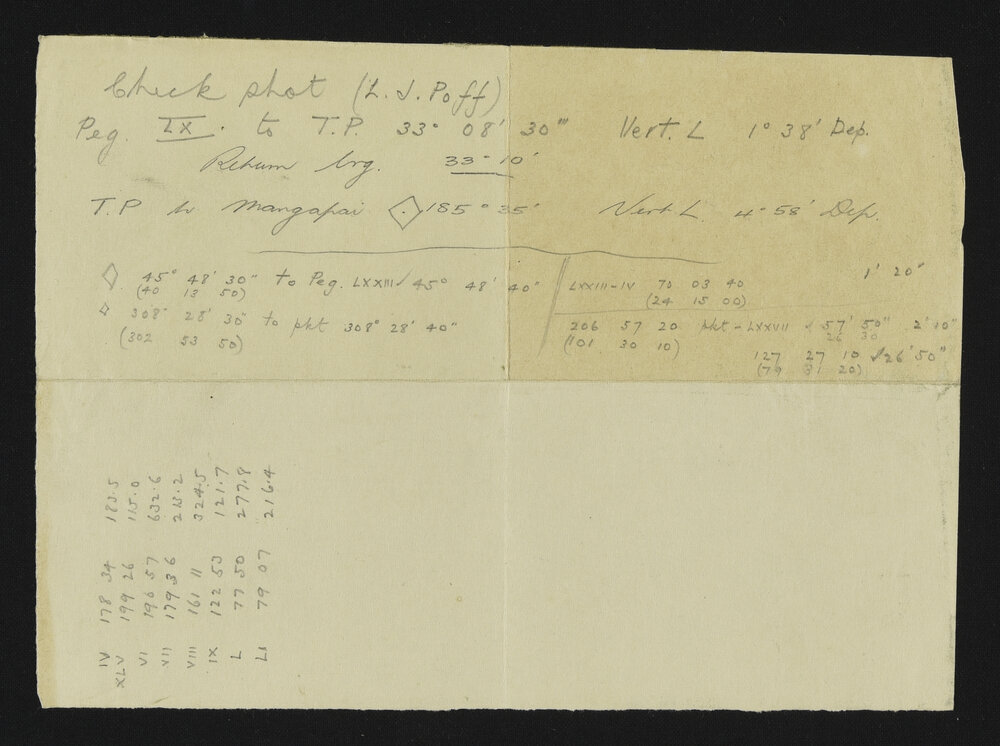 Check shot (L. J. Poff)
Peg. IX. to T.P. 33° 08' 30" Vert. L 1° 38' Dep.
Return brg. 33° 10'
T.P. to Mangapai 185° 35' Vert L. 4° 58' Dep.
45° 48' 30" to Peg. LXXIII 45° 48' 40"
(40 13 50)
308° 28' 30" to pkt 308° 28' 40"
(302 53 50)
1' 20"
LXXIII-IV 70 03 40
(24 15 00)
206 57 20 pkt - LXXVII 57' 50" 2' 10"
(101 30 10) 26 30
127 27 10 26' 50"
(79 31 20)
IV 178 34 183.5
XLV 199 26 115.0
VI 190 57 632.6
VII 179 36 213.2
VIII 161 11 324.5
IX 122 53 121.7
L 77 50 277.8
LI 79 07 216.4